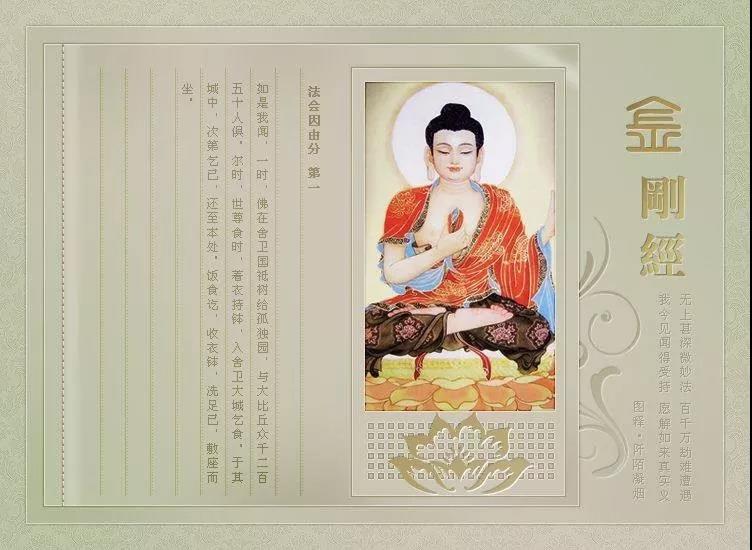 金剛經
无上甚深微妙法 百千万劫难遭遇
我今见闻得受持 愿解如来真实义
图释·阡陌凝烟
法会因由分 第一
如是我闻，一时，佛在舍卫国祗树给孤独园，与大比丘众千二百
五十人俱。尔时，世尊食时，著衣持钵，入舍卫大城乞食。于其
城中，次第乞已，还至本处。饭食讫，收衣钵，洗足已，敷座而
坐。